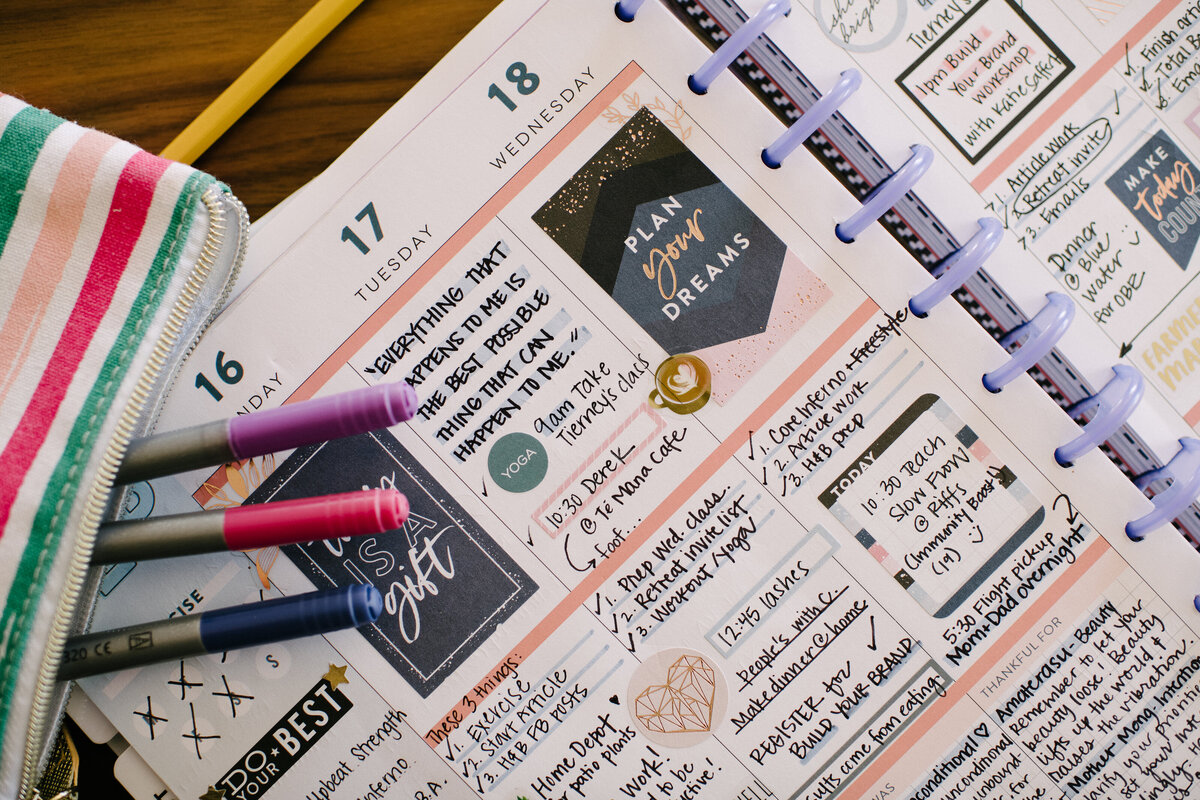 16
17
TUESDAY
18
WEDNESDAY
320 CE
S
DO
YOUR BEST
Upbeat Strength
IS A
gift
These 3 things:
1. Exercise
2. Start Article
3. H&B FB posts
Home Depot
for patio plants
Work:
"EVERYTHING THAT
HAPPENS TO ME IS
THE BEST POSSIBLE
THING THAT CAN
HAPPEN TO ME."
YOGA
9am Take
Tierney's class
10:30 Derek
@ Te Mana Cafe
foot...
1. Prep Wed. class..
2. Retreat invite list
3. Workout/Yoga
12:45 lashes
People's with C..
Make dinner @ home
REGISTER for
BUILD YOUR BRAND
come from eating
PLAN
your
DREAMS
1. Core Inferno Freestyle
2. Arvage work
3. H&B prep
TODAY
10:30 Teach
Slow Flow
@ Riffs
(Immunity Boost)
(19) :)
5:30 Flight pickup
Mom-Dad overnight
THANKFUL FOR
Remember to let your
beauty loose! Beauty
lifts up the world &
raises the vibration
unconditional
unbound
bright
Tierney's
1pm Build
Your Brand
Workshop
with Katie Caffery
Finish
Total
1. Article Work
2. Retreat invite
3. Emails
MAKE
today
COUNT
Dinner
@ Blue
Water :)
for OBE